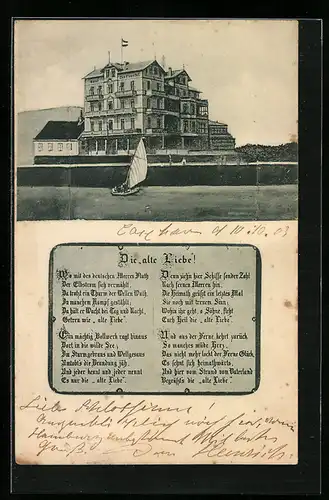 Cuxhaven d 10.10.03
Die „alte Liebe"!
Wo mit des deutschen Meeres Fluth
Der Elbstrom sich vermählt,
Da trotzt ein Thurm der Wellen Wuth,
In manchem Kampf gestählt;
Da hält er Wacht bei Tag und Nacht,
Getreu wie „alte Liebe".
Ein mächtig Bollwerk ragt hinaus
Dort in die wilde See;
Im Sturmgebraus und Wellgesaus
Umtobt's die Brandung jäh
Und jeder kennt und jeder nennt
Es nur die „alte Liebe".
Denn zieh'n hier Schiffe sonder Zahl
Nach fernen Meeren hin,
Die Heimath grüsst ein letztes Mal
Sie noch mit treuem Sinn;
Wohin ihr geht, o Söhne, fleht
Euch Heil die „alte Liebe".
Und aus der Ferne kehrt zurück
So manches müde Herz,
Das nicht mehr lockt der Ferne Glück,
Es sehnt sich heimathwärts,
Und hier vom Strand von Vaterland
Begrüsst's die „alte Liebe".
Liebe
Hamburg
Gruß
Heinrich